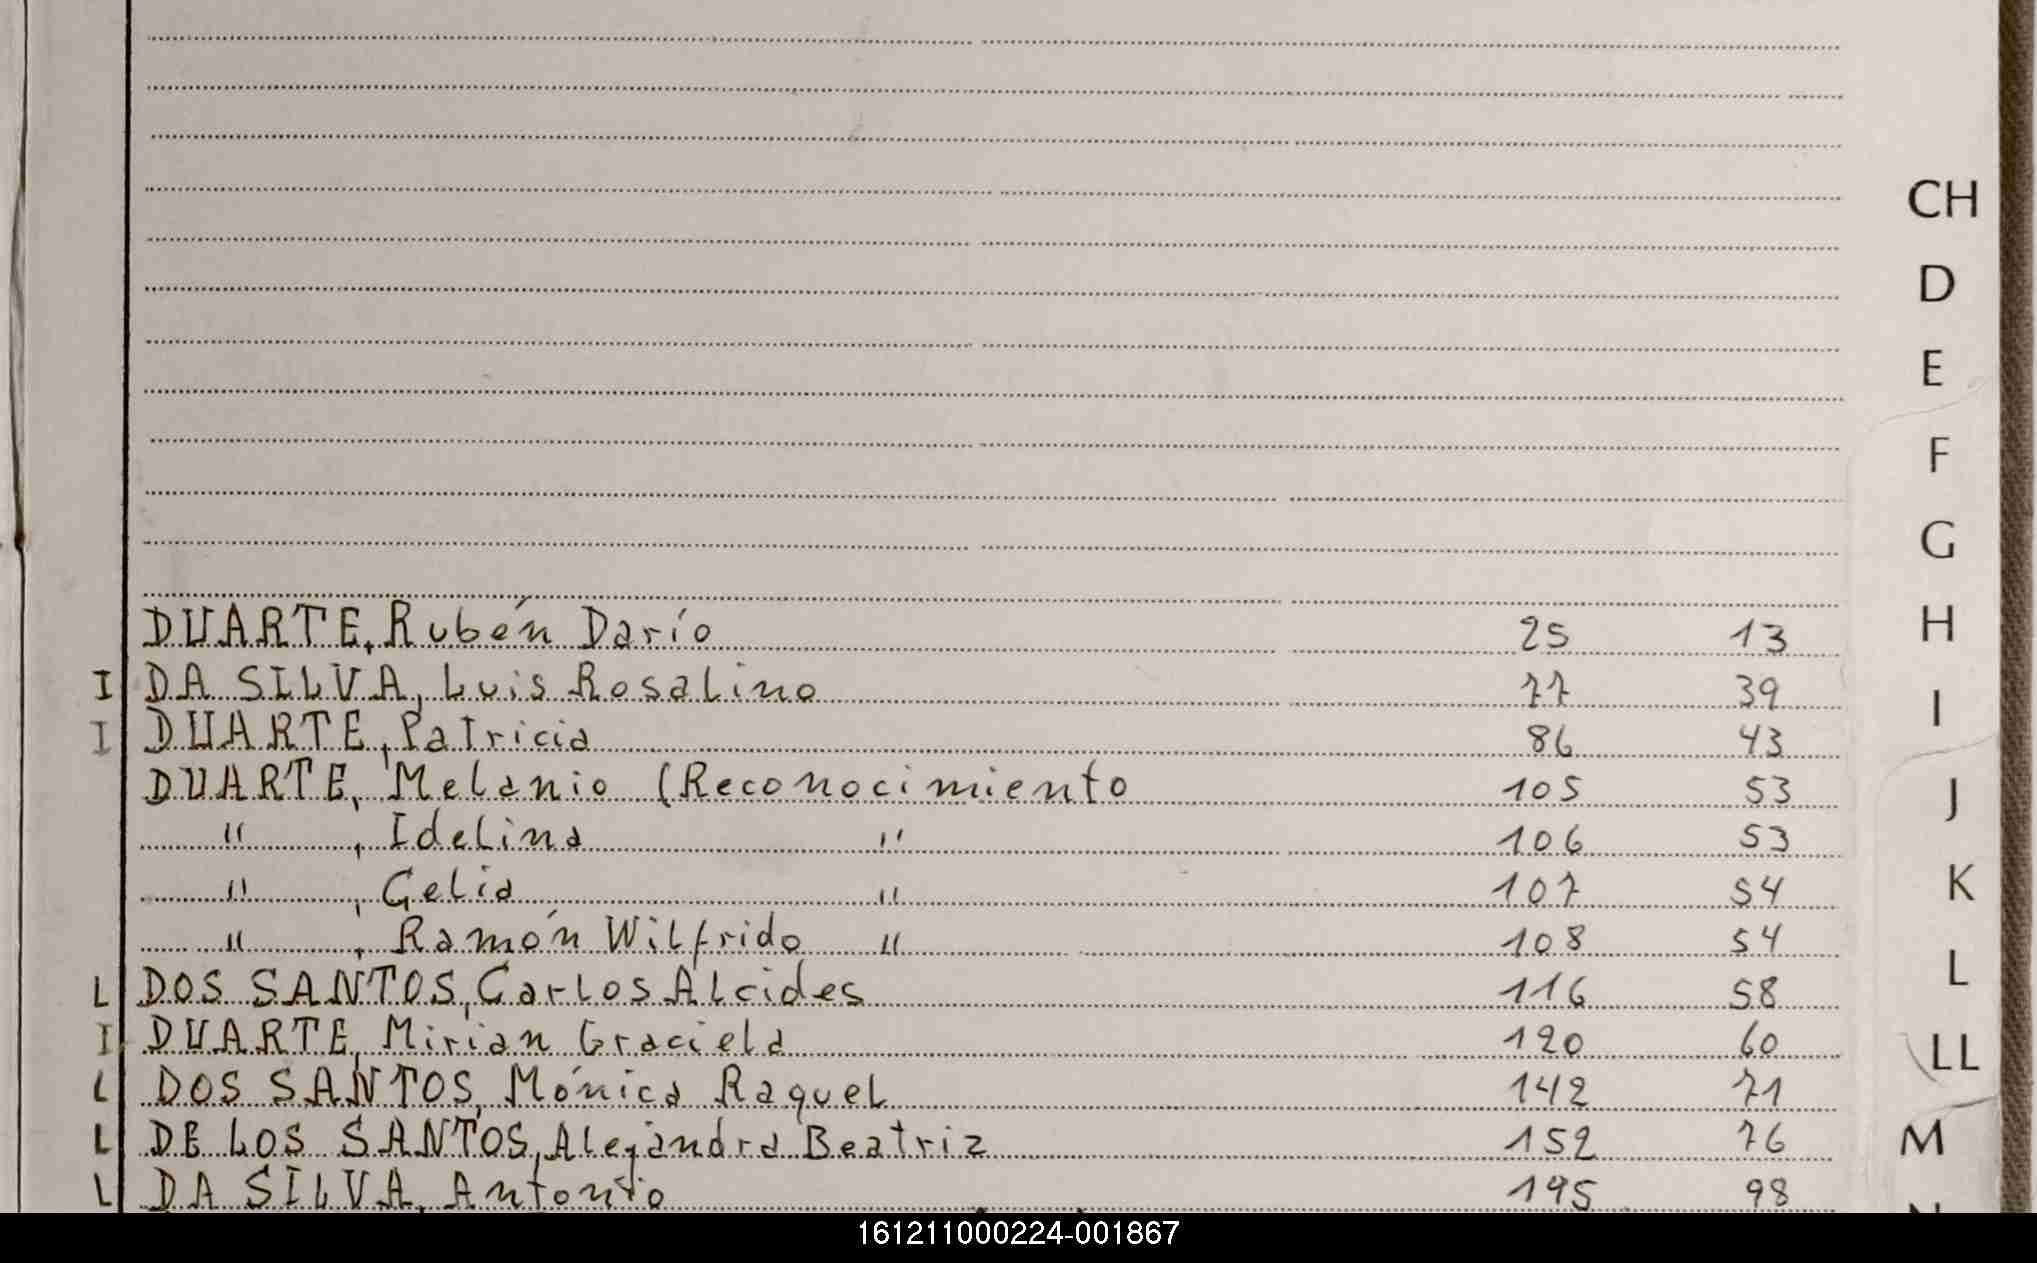 CH
D
E
F
G
DUARTE, Rubén Darío 25 13 H
I DA SILVA, Luis Rosalino 77 39 I
I DUARTE, Patricia 86 43
DUARTE, Melanio (Reconocimiento 105 53 J
" , Idelina " 106 53
" , Celia " 107 54 K
" , Ramón Wilfrido " 108 54
L DOS SANTOS, Carlos Alcides 116 58 L
I DUARTE, Mirian Graciela 120 60 LL
L DOS SANTOS, Mónica Raquel 142 71
L DE LOS SANTOS, Alejandra Beatriz 152 76 M
L DA SILVA, Antonio 195 98
161211000224-001867